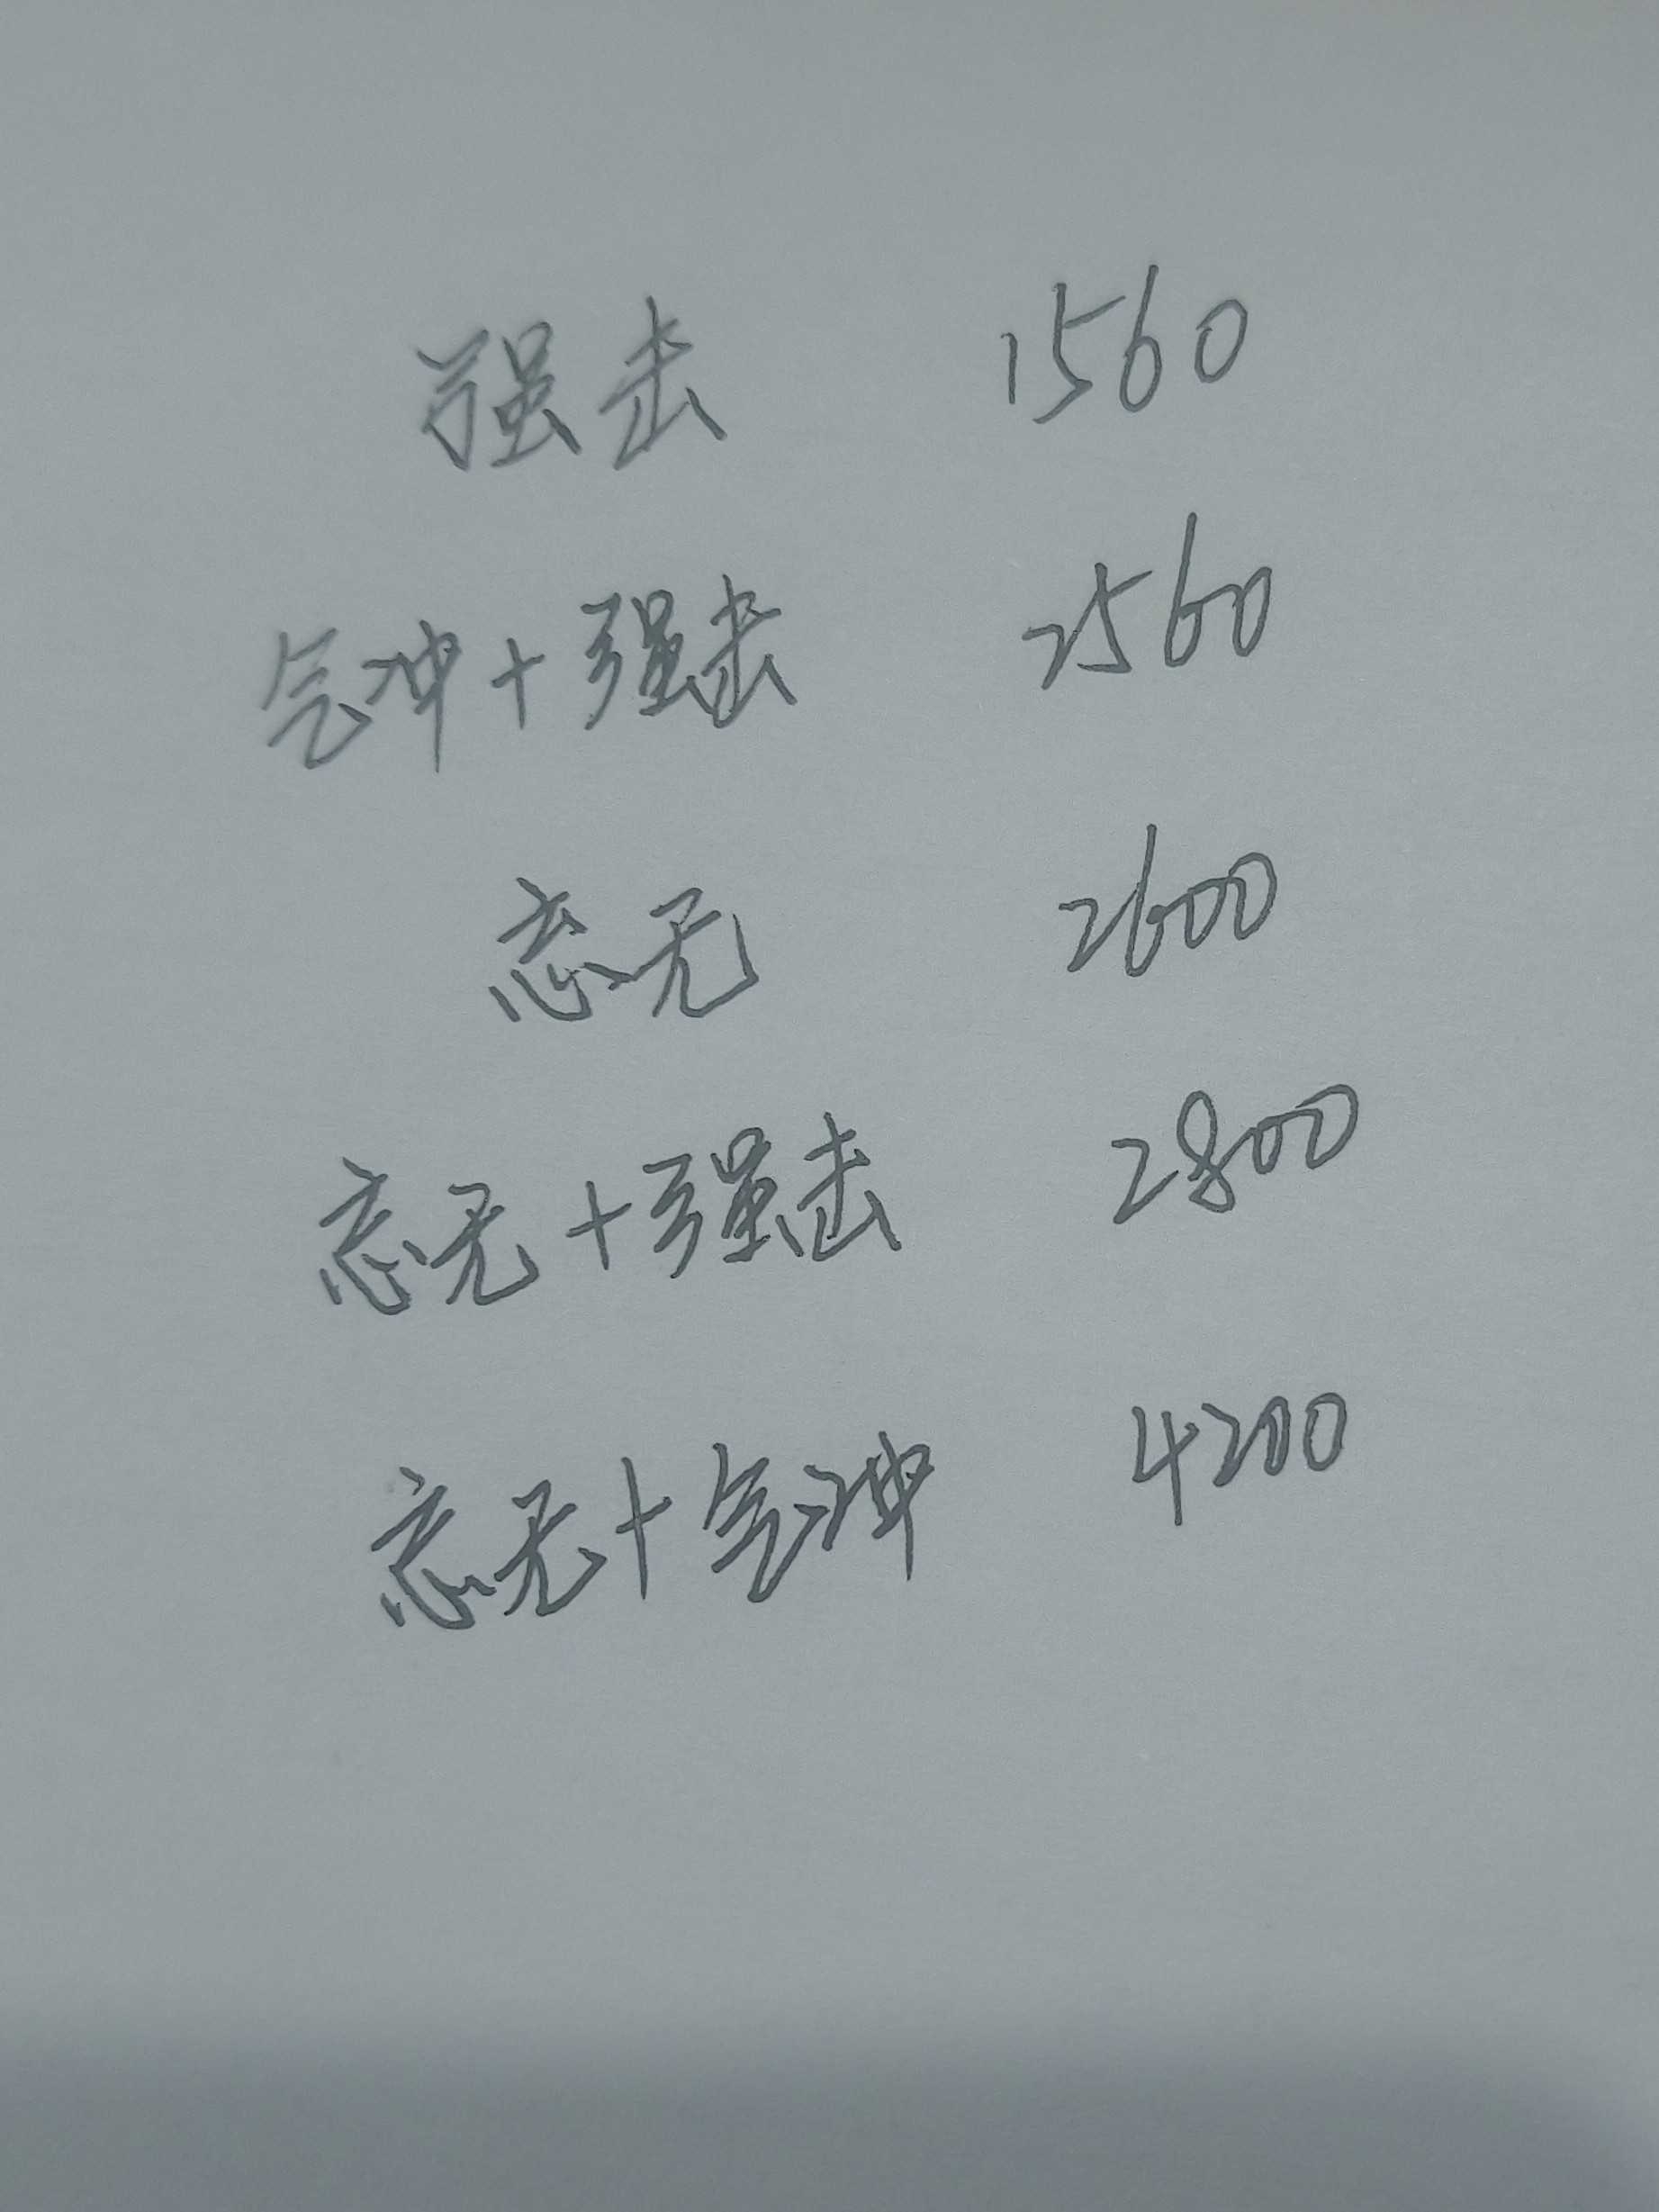 强击 1560
气冲+强击 2560
忘无 2600
忘无+强击 2800
忘无+气冲 4200